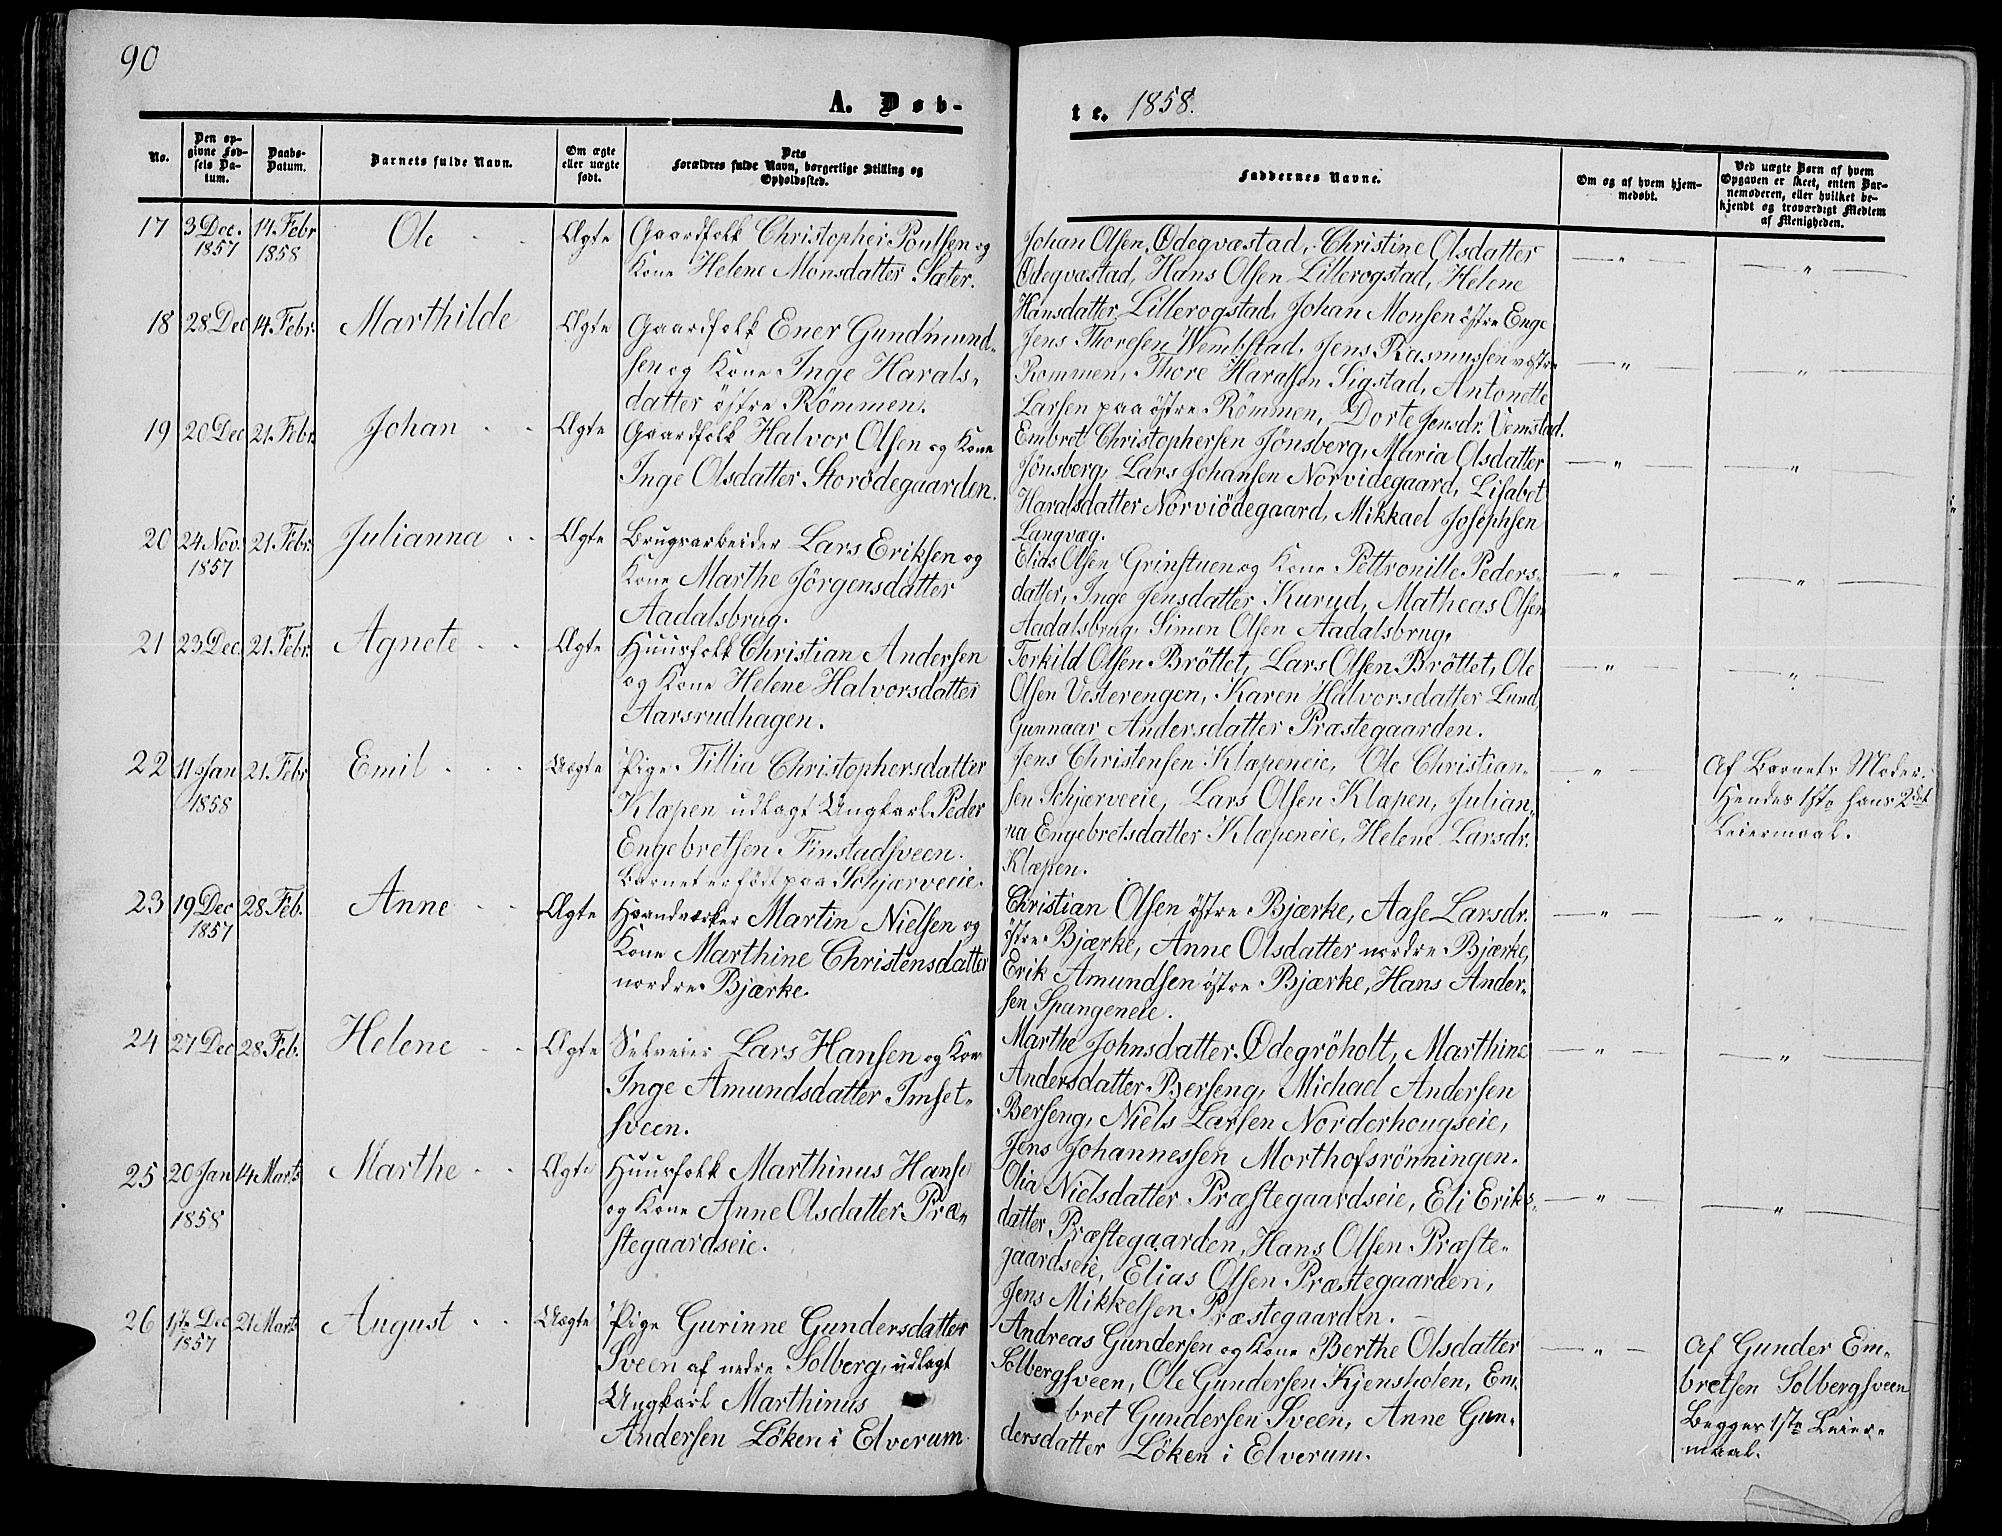 90
A. Døb-
te. 1858.
No.
Den op-
givne Fød-
sels Da-
tum.
Daabs-
Datum.
Barnets fulde Navn.
Om ægte
eller uægte
født.
Dets
Forældres fulde Navn, borgerlige Stilling og
Opholdssted.
Faddernes Navne.
Om og af hvem hjem-
medøbt.
Ved uægte Børn af hvem
Opgaven er skeet, enten Bar-
nemoderen, eller hvilket be-
kjendt og troværdigt Medlem
af Menigheden.
17 3 Dec. 1857 14 Febr 1858 Ole Ægte
Gaardfolk Christopher Poulsen og
Kone Helene Monsdatter Sæter.
Johan Olsen Ødegvæstad, Christine Olsdatter
Ødegvæstad, Hans Olsen Lillerogstad, Helene
Hansdatter Lillerogstad, Johan Monsen østre Enge
18 28 Dec 14 Febr. Marthilde Ægte
Gaardfolk Ener Gundmund-
sen og Kone Inge Harals-
datter østre Rømmen.
Jens Thoresen Wembstad, Jens Rasmussen vestre
Rommen, Thore Haralsen Sigstad, Antonette
Larsen paa østre Rømmen, Dorte Jensdr. Vemstad.
19 20 Dec 21. Febr. Johan Ægte
Gaardfolk Halvor Olsen og Kone
Inge Olsdatter Storødegaarden.
Embret Christophersen Jønsberg, Maria Olsdatter
Jønsberg, Lars Johansen Norvidegaard, Lisabet
Haralsdatter Norviødegaard, Mikkael Josephsen
Langvæg.
20 24 Nov. 1857 21. Febr. Julianna Ægte
Brugsarbeider Lars Eriksen og
Kone Marthe Jörgensdatter
Aadalsbrug.
Elias Olsen Grinstuen og Kone Pettronille Peders-
datter, Inge Jensdatter Kurud, Matheas Olsen
Aadalsbrug, Simen Olsen Aadalsbrug.
21 23 Dec. 21. Febr. Agnete Ægte
Huusfolk Christian Andersen
og Kone Helene Halvorsdatter
Aarsrudhagen.
Torkild Olsen Brøttet, Lars Olsen Brøttet, Ole
Olsen Vesterengen, Karen Halvorsdatter Lund,
Gunnaar Andersdatter Præstegaarden.
22 11 Jan 1858 21. Febr Emil Uægte
Pige Tillia Christophersdatter
Klæpen udlagt Ungkarl Peder
Engebretsen Finstadsveen.
Barnet er født paa Schjærveeie.
Jens Christensen Klæpeneie, Ole Christian-
sen Schjærveeie, Lars Olsen Klæpen, Julian-
na Engebretsdatter Klæpeneie, Helene Larsdr.
Klæpen.
Af Barnets Moder.
Hendes 1ste hans 2det
Leiermaal.
23 19 Dec 1857 28 Feb. Anne Ægte
Haandværker Martin Nielsen og
Kone Marthine Christensdatter
nordre Bjærke.
Christian Olsen østre Bjærke, Aase Larsdr.
østre Bjærke, Anne Olsdatter nordre Bjærke,
Erik Amundsen østre Bjærke, Hans Ander-
sen Spangeneie.
24 27 Dec 28 Feb. Helene Ægte
Selveier Lars Hansen og Kone
Inge Amundsdatter Imset-
sveen.
Marthe Johnsdatter Ødegröholt, Marthine
Andersdatter Berseng, Michael Andersen
Berseng, Niels Larsen Norderhougseie,
Jens Johannessen Morthofsrønningen.
25 20 Jan 1858 14 Marts Marthe Ægte
Huusfolk Marthinus Hansen
og Kone Anne Olsdatter Præ-
stegaardseie.
Olia Nielsdatter Præstegaardseie, Eli Eriks-
datter Præstegaarden, Hans Olsen Præste-
gaardseie, Elias Olsen Præstegaarden,
Jens Mikkelsen Præstegaarden.
26 1ste Dec 1857 21 Marts August Uægte
Pige Gurinne Gundersdatter
Sveen af nedre Solberg, udlagt
Ungkarl Marthinus
Andersen Løken i Elverum.
Andreas Gundersen og Kone Berthe Olsdatter
Solbergsveen, Ole Gundersen Kjensholen, Em-
bret Gundersen Sveen, Anne Gun-
dersdatter Løken i Elverum.
Af Gunder Em-
bretsen Solbergsveen
Begges 1ste Leier-
maal.